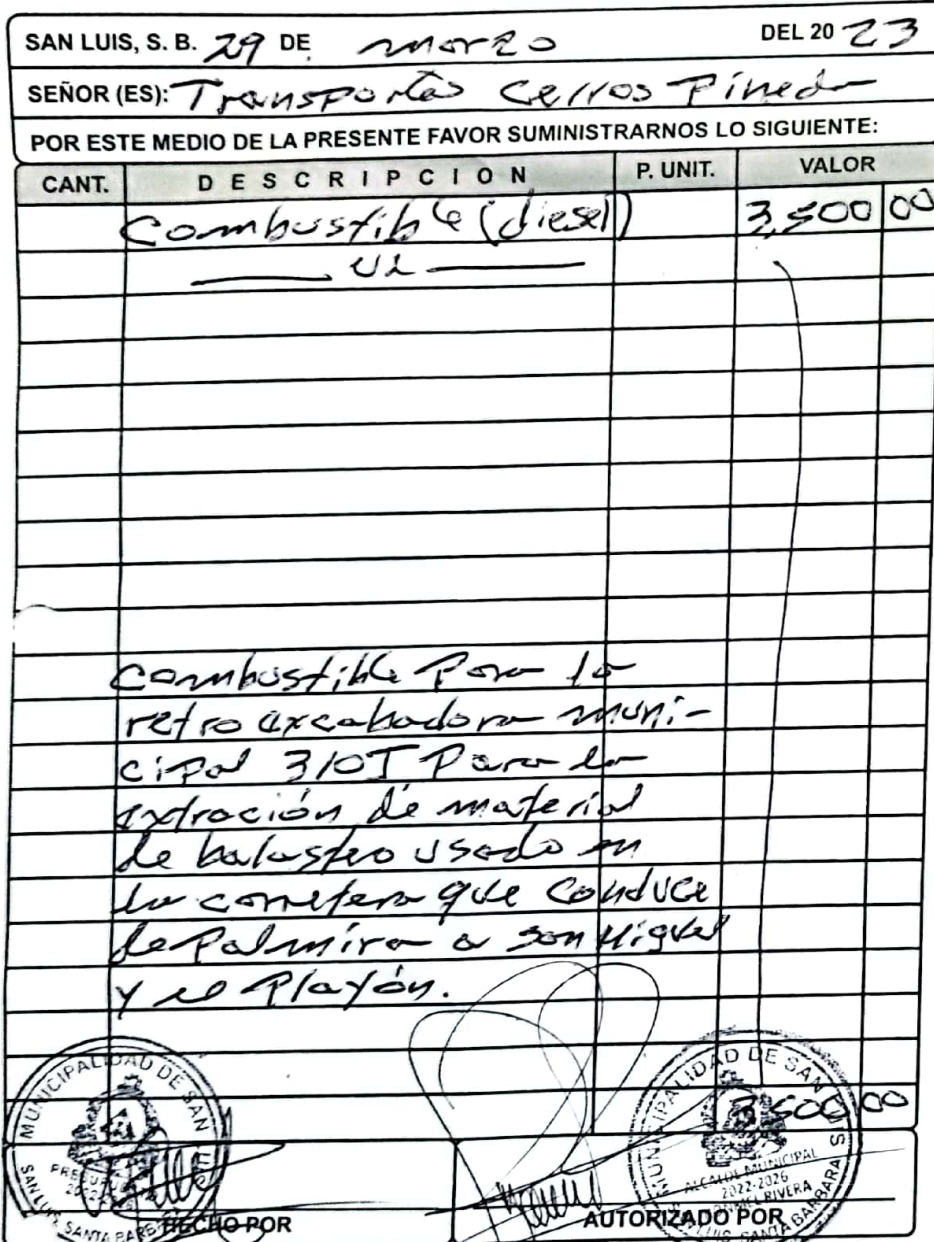 SAN LUIS, S. B. 29 DE marzo DEL 2023
SEÑOR (ES): Transportes Cerros Pineda
POR ESTE MEDIO DE LA PRESENTE FAVOR SUMINISTRARNOS LO SIGUIENTE:
CANT. DESCRIPCION P. UNIT. VALOR
Combustible (diesel) 3,500 00
UL
Combustible Para la
retro excabadora muni-
cipal 310J Para la
extración de material
de balastro usado en
la carretera que conduce
de Palmira a San Miguel
y el Playón.
3500 00
MUNICIPALIDAD DE SAN
SAN LUIS, SANTA BARB
MUNICIPALIDAD DE SAN LUIS SANTA BARBARA
ALCALDE MUNICIPAL
2022-2026
RIVERA
HECHO POR AUTORIZADO POR